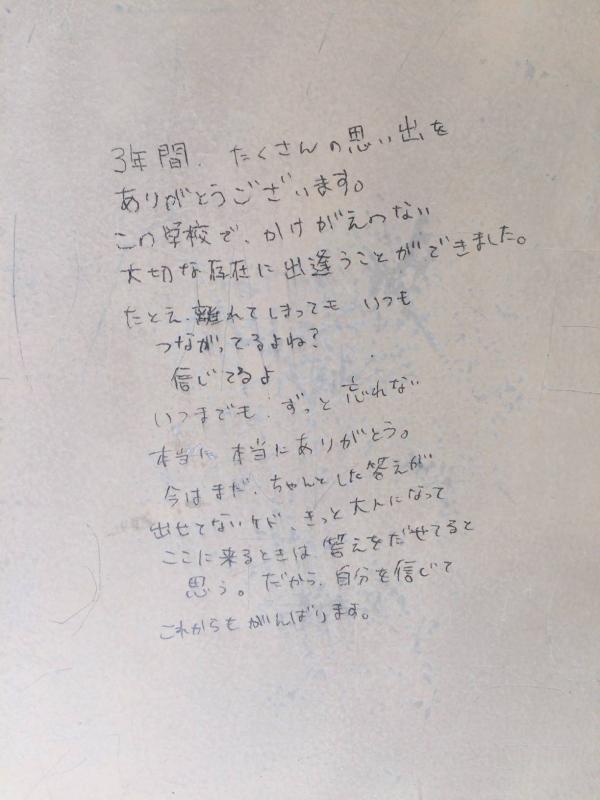 3年間、たくさんの思い出を
ありがとうございます。
この学校で、かけがえのない
大切な存在に出逢うことができました。
たとえ、離れてしまっても いつも
つながってるよね?
信じてるよ
いつまでも、ずっと忘れない
本当に 本当にありがとう。
今はまだ、ちゃんとした答えが
出せてないケド、きっと大人になって
ここに来るときは 答えをだせてると
思う。だから、自分を信じて
これからもがんばります。